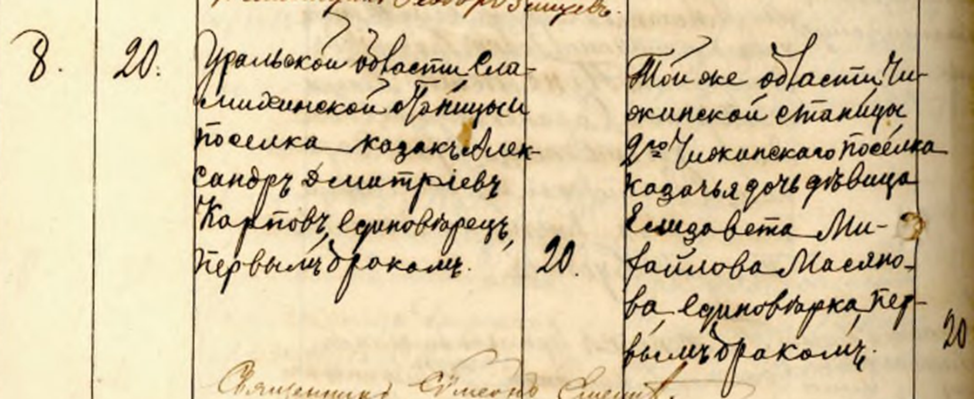 8.
20.
Уральской области Сла-
михинской станицы и
поселка казакъ Алек-
сандръ Димитріевъ
Карповъ, единовѣрецъ,
первымъ бракомъ.
20.
Той же области, Чи-
жинской станицы
2го Чижинскаго посёлка
казачья дочь дѣвица
Елизавета Ми-
хайлова Масяно-
ва, единовѣрка, пер-
вымъ бракомъ.
20
Священникъ Симеонъ